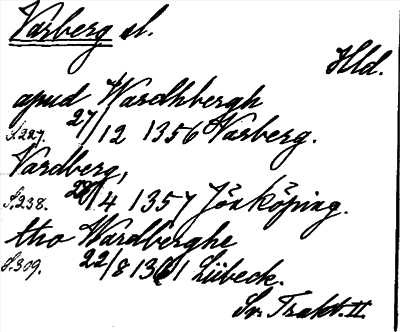 Varberg sl.
Hld.
apud Wardhbergh
S.227. 27/12 1356 Varberg.
Vardberg,
S.238. 28/4 1357 Jönköping.
tho Wardberghe
S.309. 22/8 1361 Lübeck.
Sv. Trakt. II